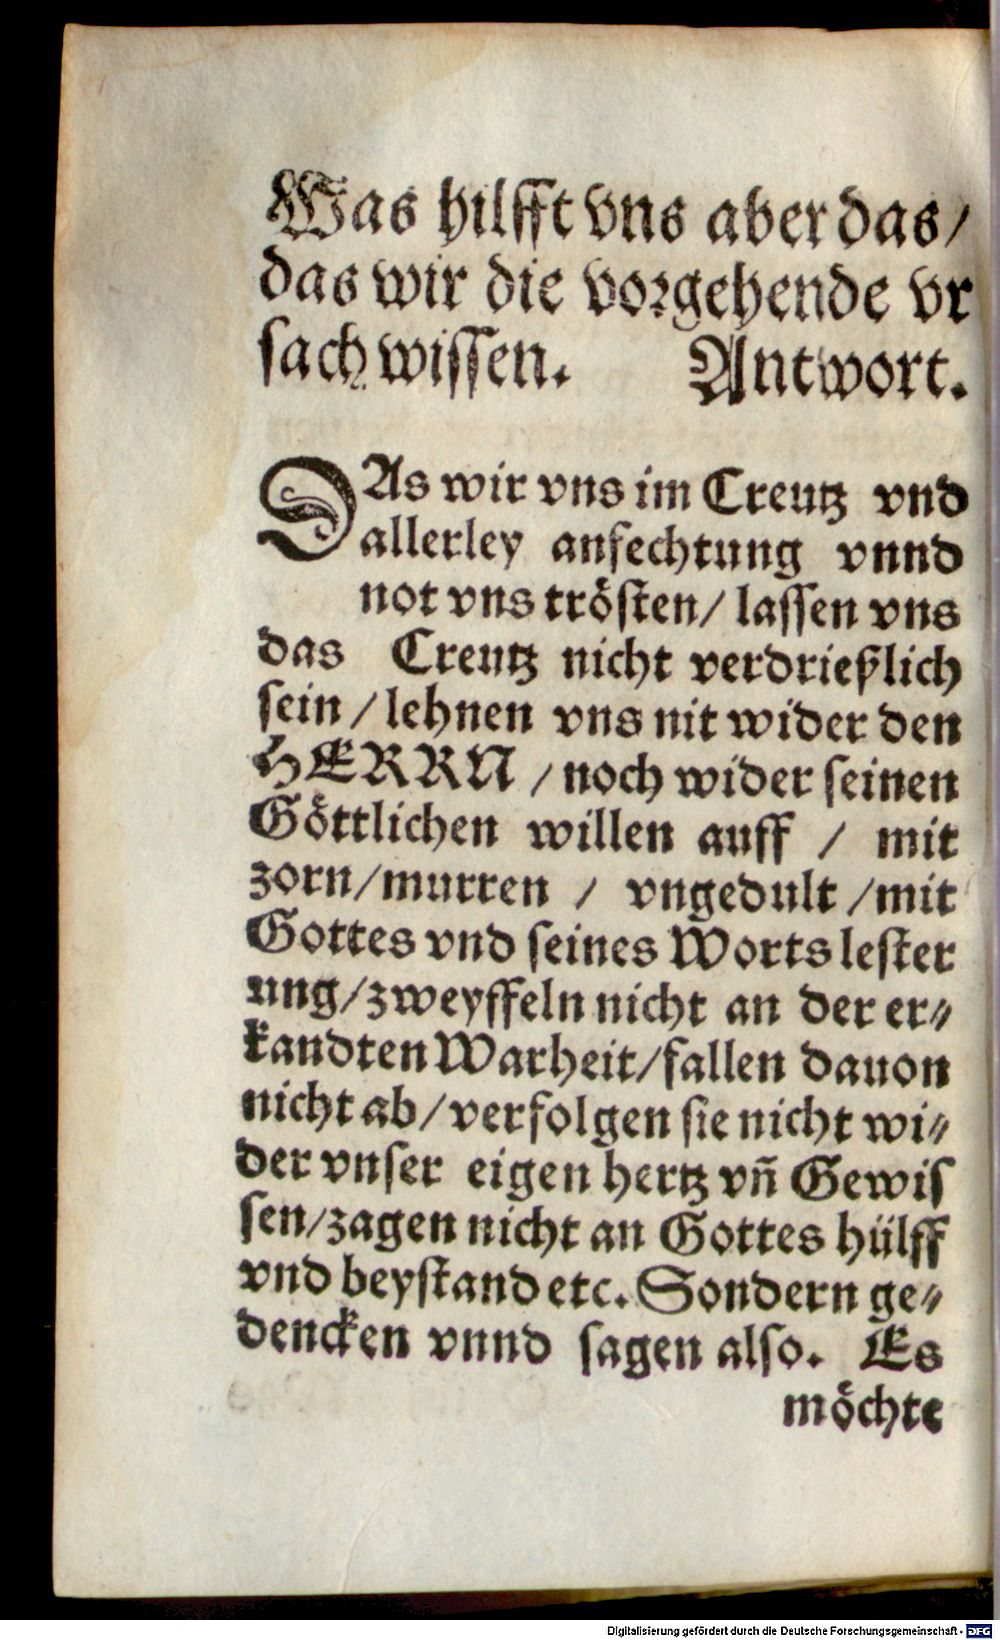 Was hilfft vns aber das/
das wir die vorgehende vr
sach wissen. Antwort.
DAs wir vns im Creutz vnd
allerley anfechtung vnnd
not vns trösten/ lassen vns
das Creutz nicht verdrießlich
sein / lehnen vns nit wider den
HERRN / noch wider seinen
Göttlichen willen auff / mit
zorn/murren / vngedult /mit
Gottes vnd seines Worts lester
ung/zweyffeln nicht an der er⸗
kandten Warheit/fallen dauon
nicht ab/verfolgen sie nicht wi⸗
der vnser eigen hertz vñ Gewis
sen/zagen nicht an Gottes hülff
vnd beystand etc. Sondern ge⸗
dencken vnnd sagen also. Es
möchte
Digitalisierung gefördert durch die Deutsche Forschungsgemeinschaft - DFG